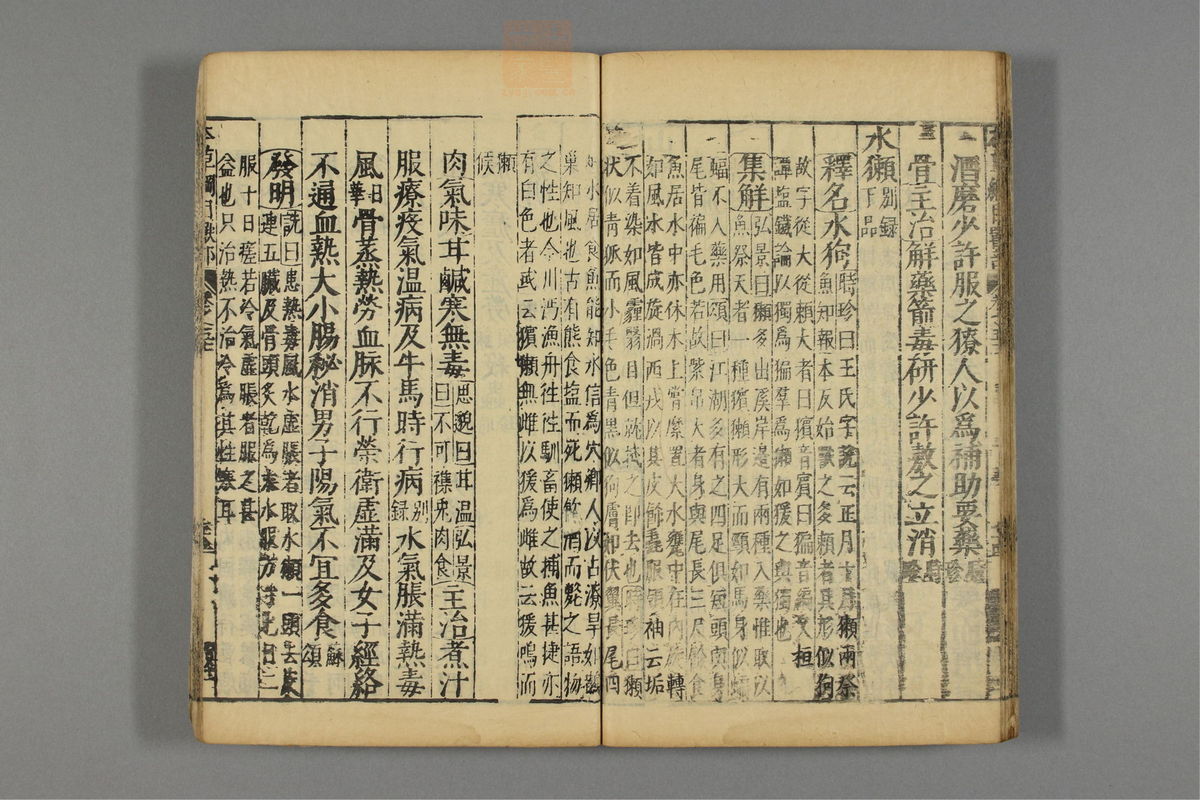 酒磨少許服之獠人以爲補助要藥
骨主治解藥箭毒研少許敷之立消
水獺別錄下品
釋名水狗時珍曰王氏字說云正月十月獺兩祭
魚知報本反始獸之多賴者其形似狗
故字從犬從賴大者曰獱音賓曰猵音編又桓
譚鹽鐵論以獨爲猵羣爲獺如猨之與獨也
集解弘景曰獺多出溪岸邊有兩種入藥惟取以
魚祭天者一種獱獺形大而頸如馬身似蝙
蝠不入藥用頌曰江湖多有之四足俱短頭與身
尾皆褊毛色若故紫帛大者身與尾長三尺餘食
魚居水中亦休木上嘗縻置大水甕中在內旋轉
如風水皆成旋渦西戎以其皮飾毳服領袖云垢
不着染如風霾翳目但就拭之即去也時珍曰獺
狀似青狐而小毛色青黑似狗膚如伏翼長尾四
水居食魚能知水信爲穴鄉人以占潦旱如鵲
巢知風也古有熊食鹽而死獺飲酒而斃之語物
之性也今川沔漁舟徃徃馴畜使之捕魚甚捷亦
有白色者或云獱獺無雌以猨爲雌故云猨鳴而
獺候
肉氣味甘鹹寒無毒思邈曰甘溫弘景
曰不可雜兔肉食主治煮汁
服療疫氣溫病及牛馬時行病別錄水氣脹滿熱毒
風日華骨蒸熱勞血脉不行榮衛虛滿及女子經絡
不通血熱大小腸秘消男子陽氣不宜多食蘇頌
發明詵曰患熱毒風水虛脹者取水獺一頭去皮
連五臟及骨頭炙乾爲末水服方寸匕日二
服十日瘥若冷氣虛脹者服之甚
益也只治熱不治冷爲其性寒耳